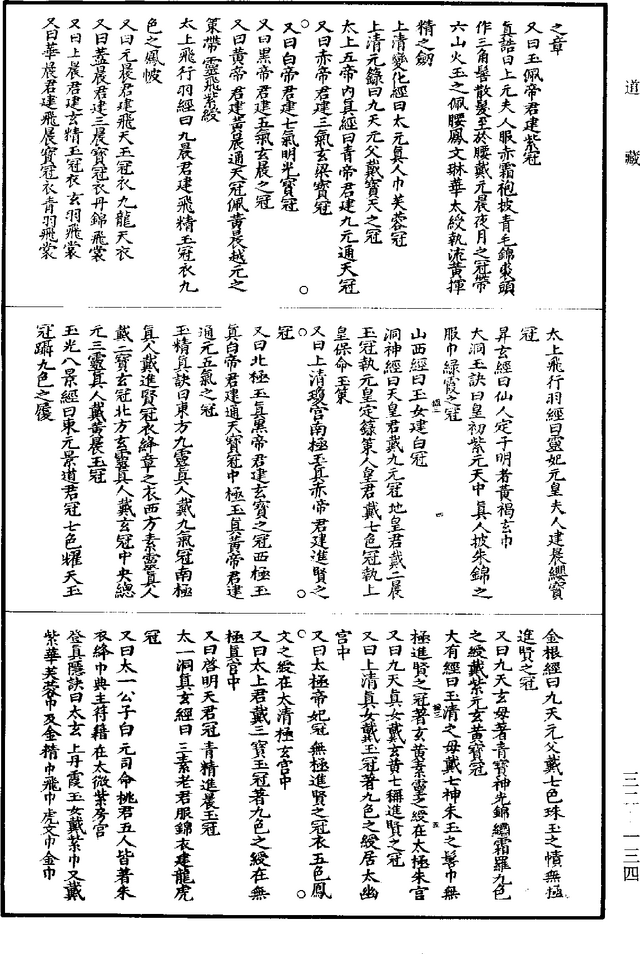 道藏
之章
又曰玉佩帝君建紫冠
真誥曰上元夫人服赤霜袍披青毛錦裘頭
作三角髻散髮至於腰戴元晨夜月之冠帶
六山火玉之佩腰鳳文琳華太綬執流黃揮
精之劒
上清變化經曰太元真人巾芙蓉冠
上清元籙曰九天元父戴寶天之冠
太上五帝內真經曰青帝君建九元通天冠
又曰赤帝君建三氣玄梁寶冠
又曰白帝君建七氣明光寶冠
又曰黑帝君建五氣玄晨之冠
又曰黃帝君建黃晨通天冠佩黃晨越元之
策帶靈飛紫綬
太上飛行羽經曰九晨君建飛精玉冠衣九
色之鳳帔
又曰元晨君建飛天玉冠衣九龍天衣
又曰蓋晨君建三晨寶冠衣丹錦飛裳
又曰上晨君建玄精玉冠衣玄羽飛裳
又曰華晨君建飛晨寶冠衣青羽飛裳
太上飛行羽經曰靈妃元皇夫人建晨纓寶
冠
昇玄經曰仙人定子明者黃褐玄巾
大洞玉訣曰皇初紫元天中真人披朱錦之
服巾綠霞之冠
山西經曰玉女建白冠
洞神經曰天皇君戴九元冠地皇君戴二晨
玉冠執元皇定籙策人皇君戴七色冠執上
皇保命玉策
又曰上清瓊宮南極玉真赤帝君建進賢之
冠
又曰北極玉真黑帝君建玄寶之冠西極玉
真白帝君建通天寶冠中極玉真黃帝君建
通元五氣之冠
玉精真訣曰東方九靈真人戴九氣冠南極
真人戴進賢冠衣絳章之衣西方素靈真人
戴二寶玄冠北方玄靈真人戴玄冠中央總
元三靈真人戴黃晨玉冠
玉光八景經曰東元景道君冠七色耀天玉
冠躡九色之履
金根經曰九天元父戴七色珠玉之幘無極
進賢之冠
又曰九天玄母著青寶神光錦繡霜羅九色
之綬戴紫元玄黃寶冠
大有經曰玉清之母戴七神朱玉之髻巾無
極進賢之冠著玄黃素靈之綬在太極朱宮
又曰九天真女戴玄黃七稱進賢之冠
又曰上清真女戴玉冠著九色之綬居太幽
宮中
又曰太極帝妃冠無極進賢之冠衣五色鳳
文之綬在太清極玄宮中
又曰太上君戴三寶玉冠著九色之綬在無
極真宮中
又曰啓明天君冠青精進晨玉冠
太一洞真玄經曰三素老君服錦衣建龍虎
冠
又曰太一公子白元司命桃君五人皆著朱
衣絳巾典主符籍在太微紫房宮
登真隱訣曰太玄上丹霞玉女戴紫巾又戴
紫華芙蓉巾及金精巾飛巾虎文巾金巾